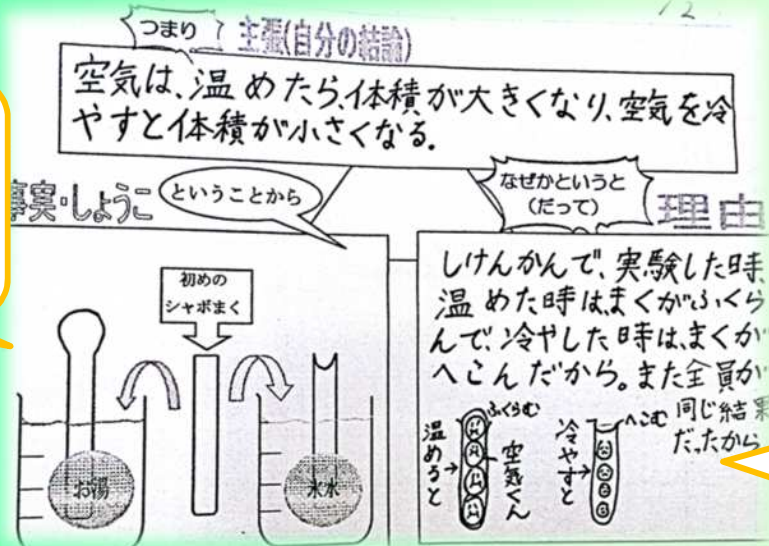 12
つまり
主張(自分の結論)
空気は、温めたら、体積が大きくなり、空気を冷
やすと体積が小さくなる。
事実・しょうこ
ということから
なぜかというと
(だって)
理由
初めの
シャボまく
お湯
氷水
しけんかんで、実験した時、
温めた時はまくがふくら
んで、冷やした時は、まくが
へこんだから。また全員が
同じ結果
だったから
温めると
ふくらむ
空気くん
冷やすと
へこむ